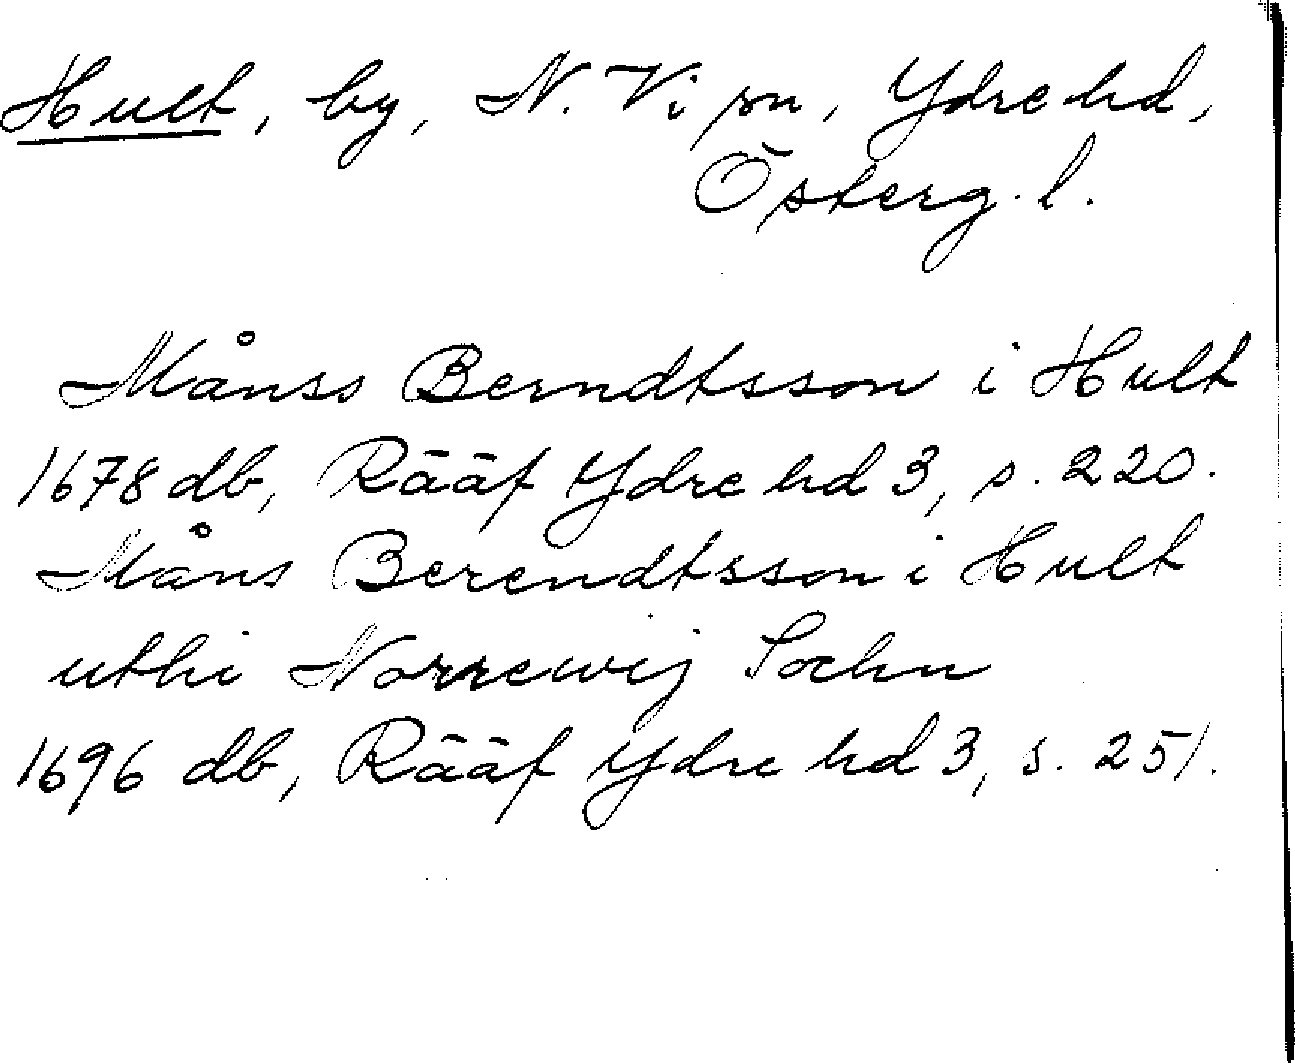 Hult, by, N. Vi sn, Ydre hd,
Österg. l.
Månss Berndtsson i Hult
1678 db, Rääf Ydre hd 3, s. 220.
Måns Berendtsson i Hult
uthi Norrewij Sochn
1696 db, Rääf Ydre hd 3, s. 251.